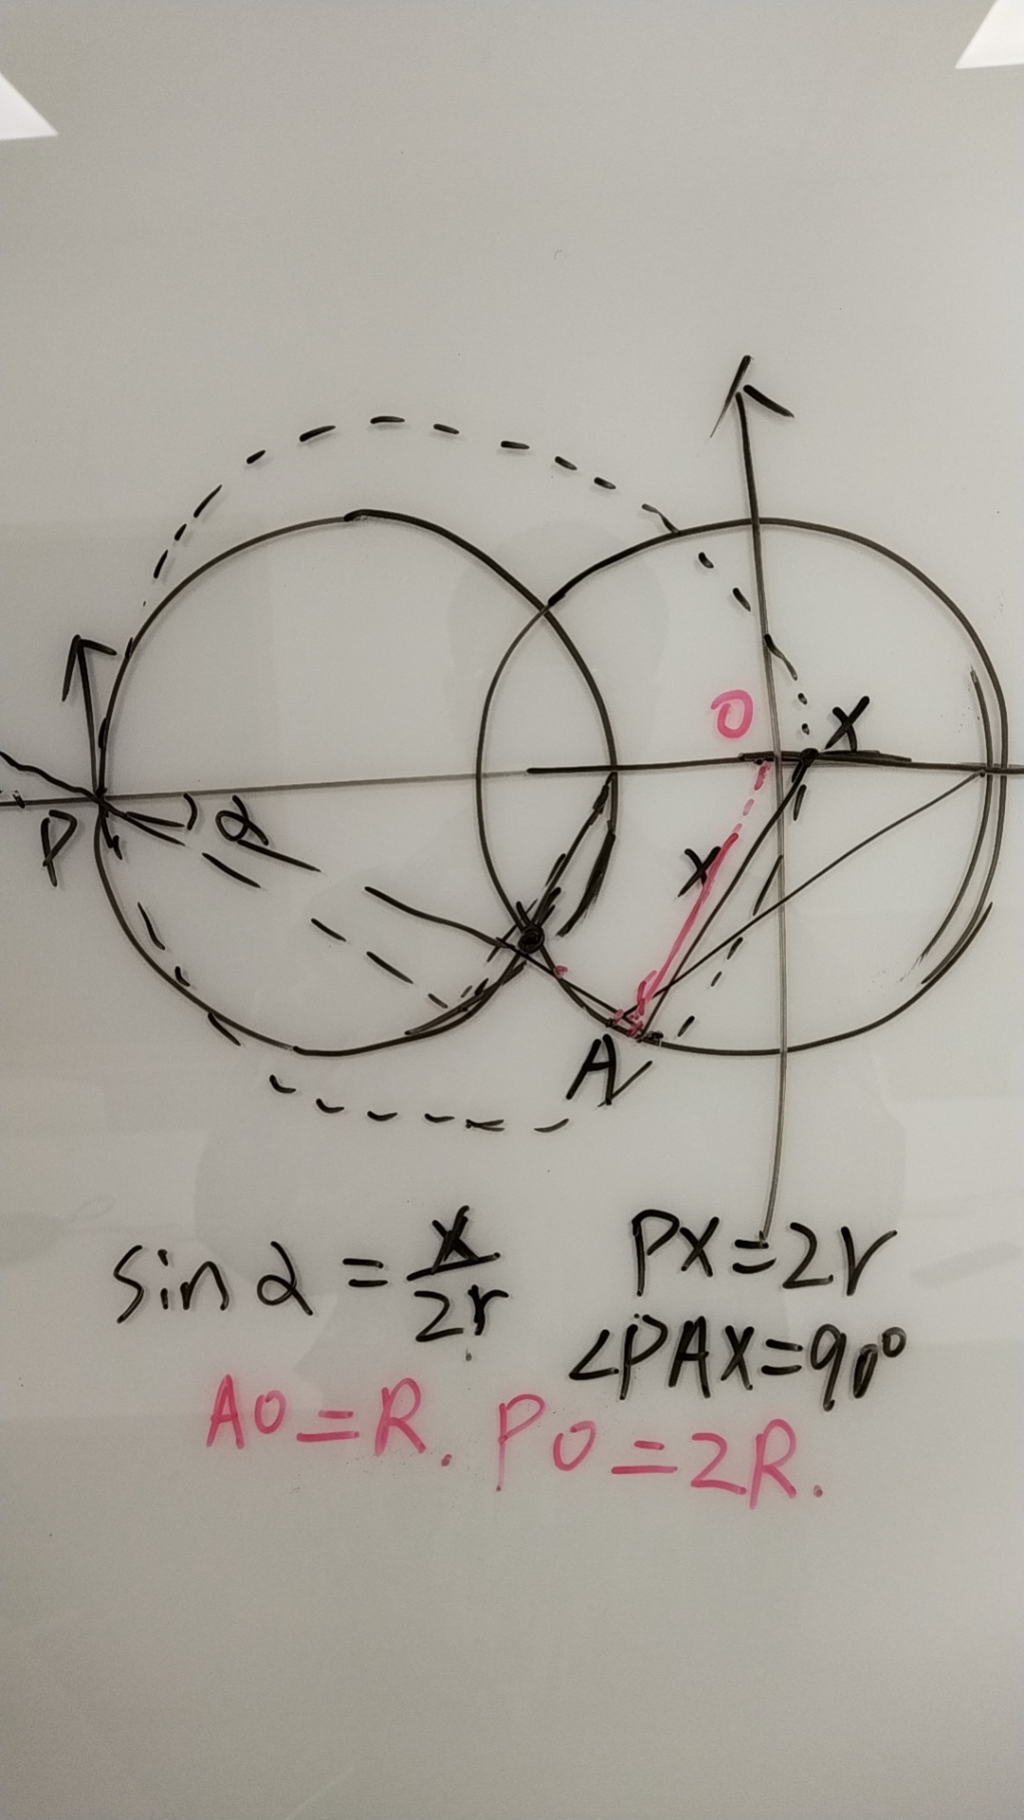 O
X
P
α
x
A
sin α = x/2r
PX=2r
∠PAX=90°
AO=R. PO=2R.